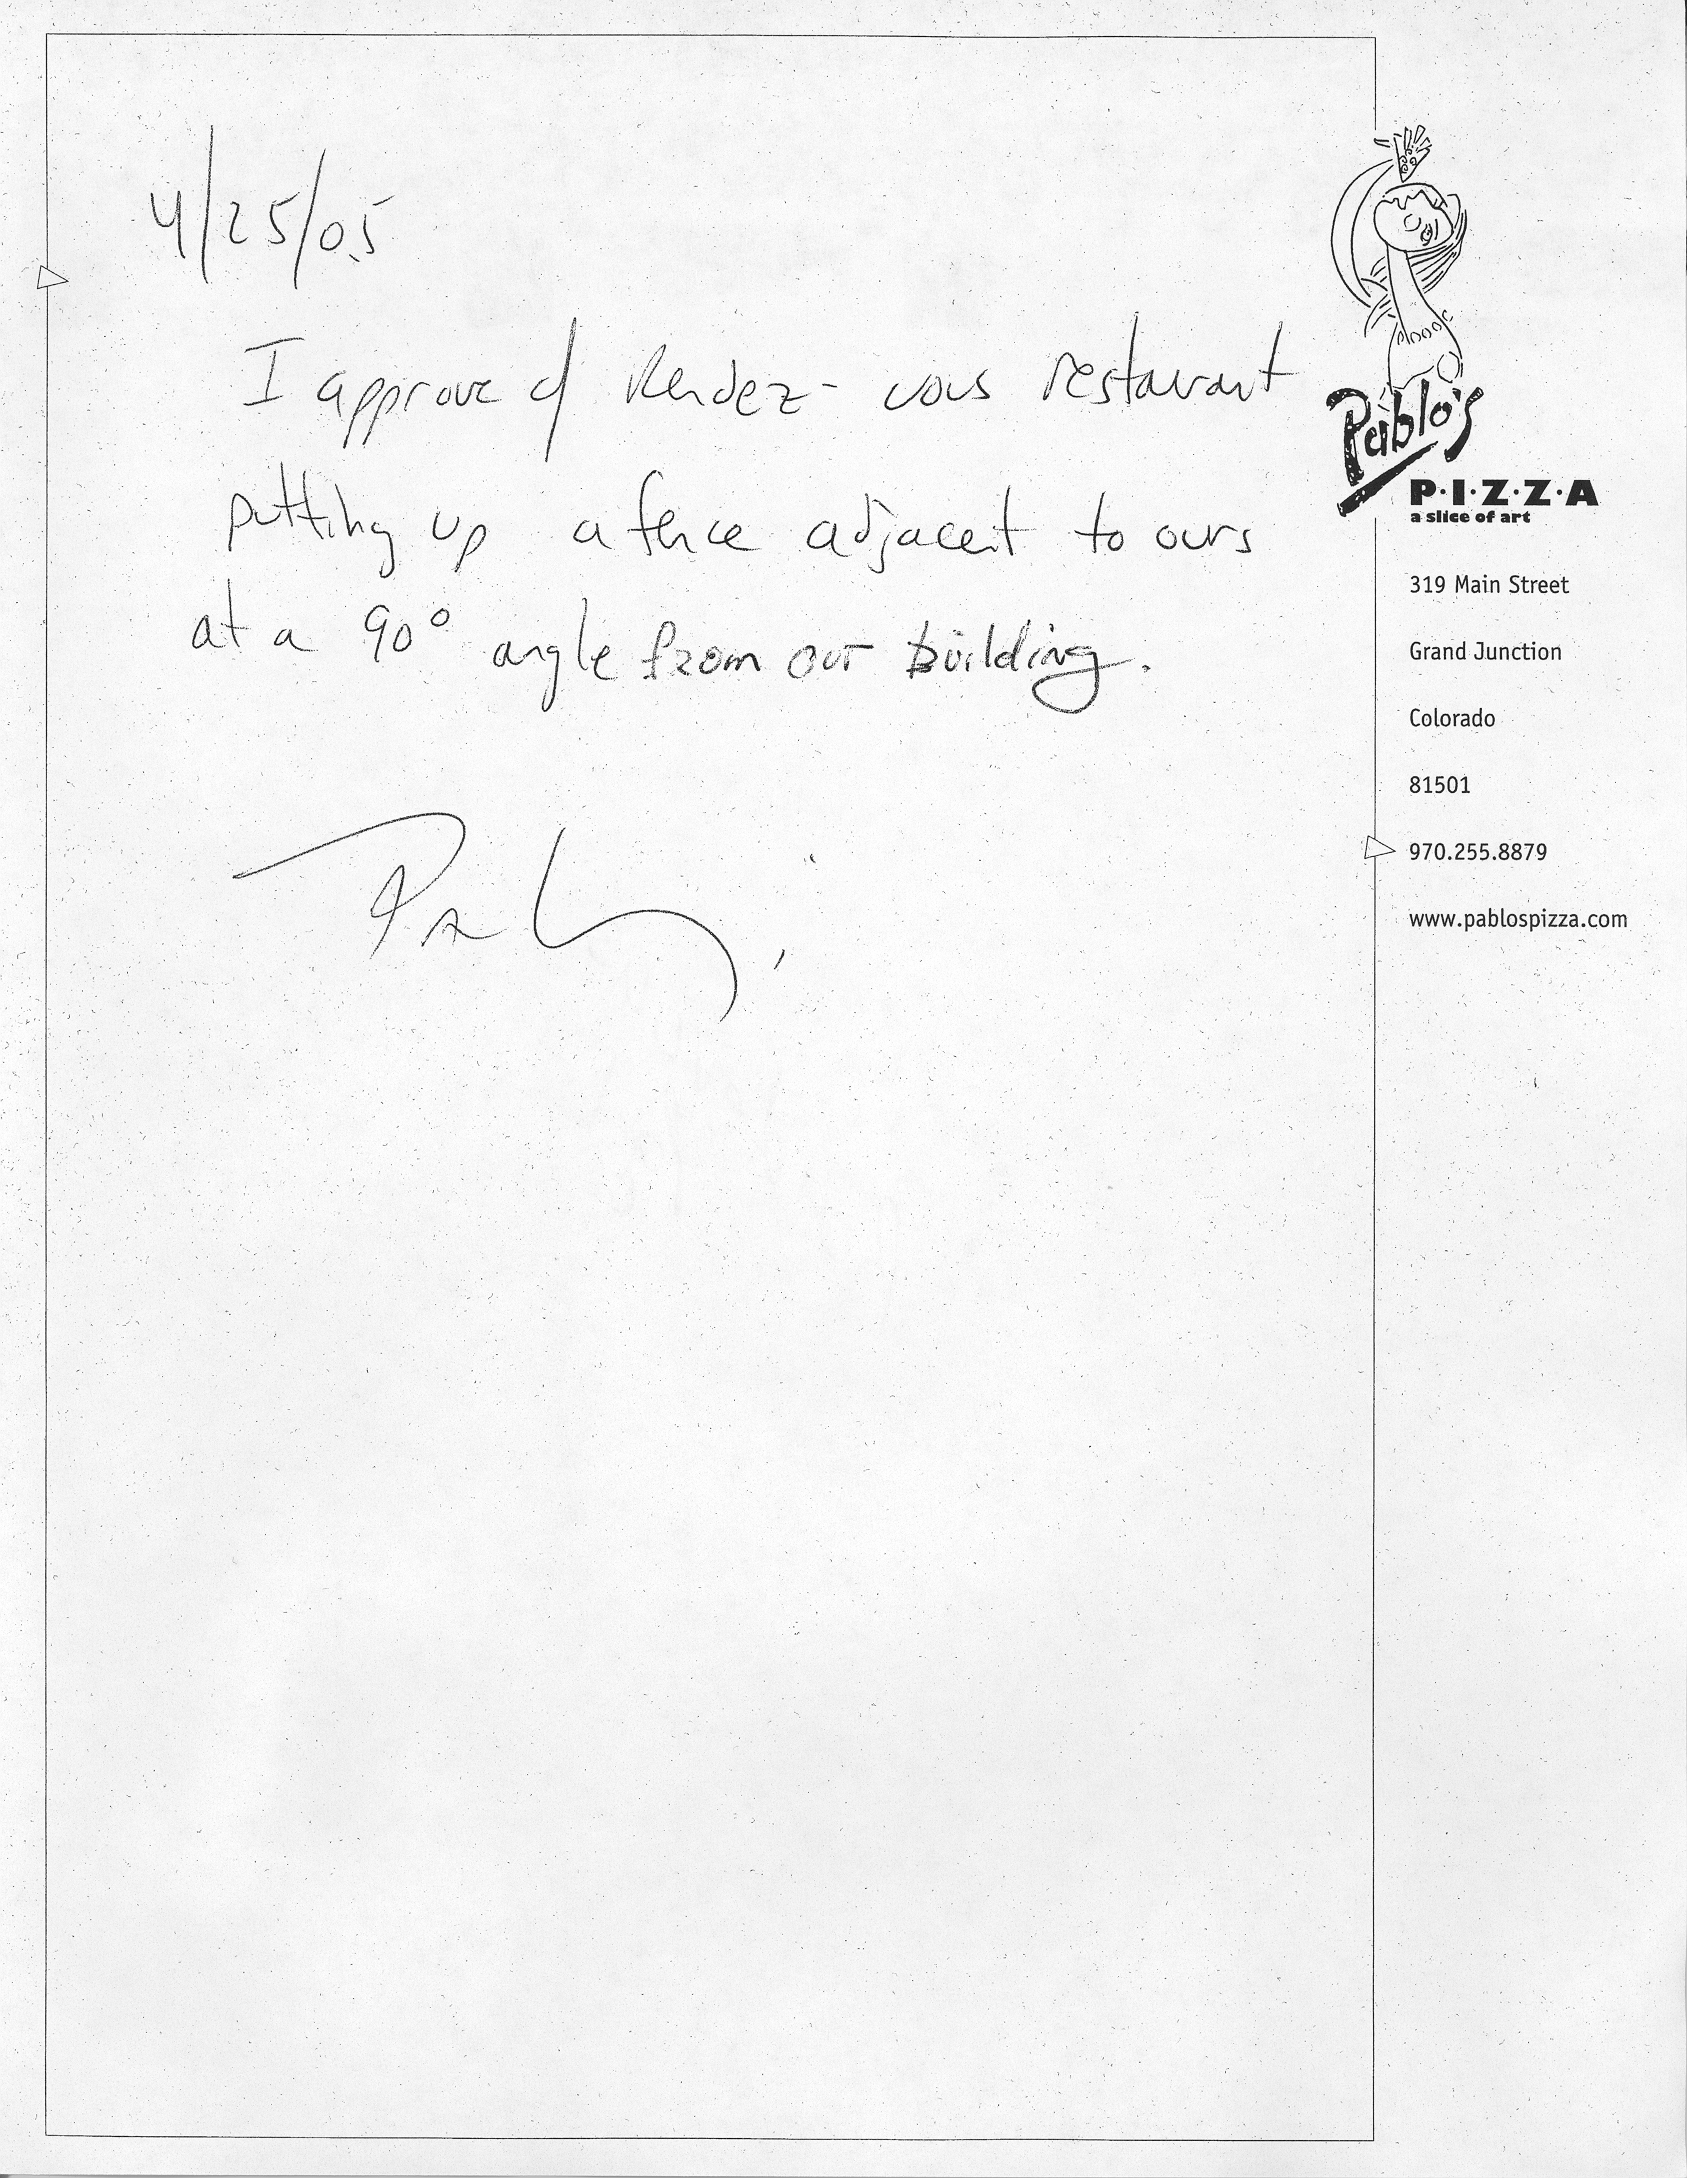 4/25/05
I approve of Rendez-vous restaurant
putting up a fence adjacent to ours
at a 90° angle from our building.
Pablo's
P·I·Z·Z·A
a slice of art
319 Main Street
Grand Junction
Colorado
81501
970.255.8879
www.pablospizza.com